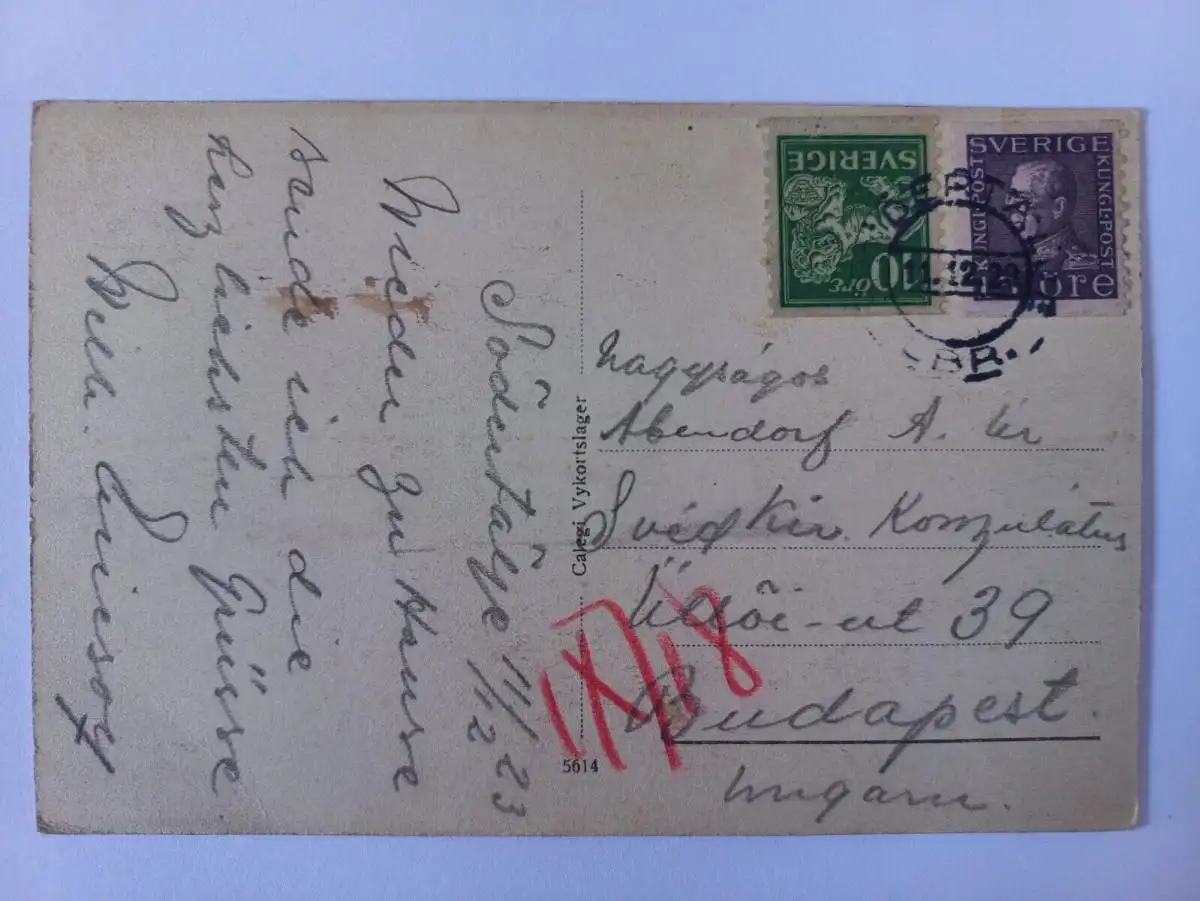 Södertälje 11/12 23
Wieder zu Hause
sende ich die
herzlichsten Grüsse
Nagyságos
Abendorf A. úr
Svéd Kir. Konzulátus
Üllői-ut 39
Budapest.
Ungarn.
Calegi Vykortslager
5614
SVERIGE
10 ÖRE
SVERIGE
KUNGL. POST
KUNGL. POST
ÖRE
11.12.23
IX/18